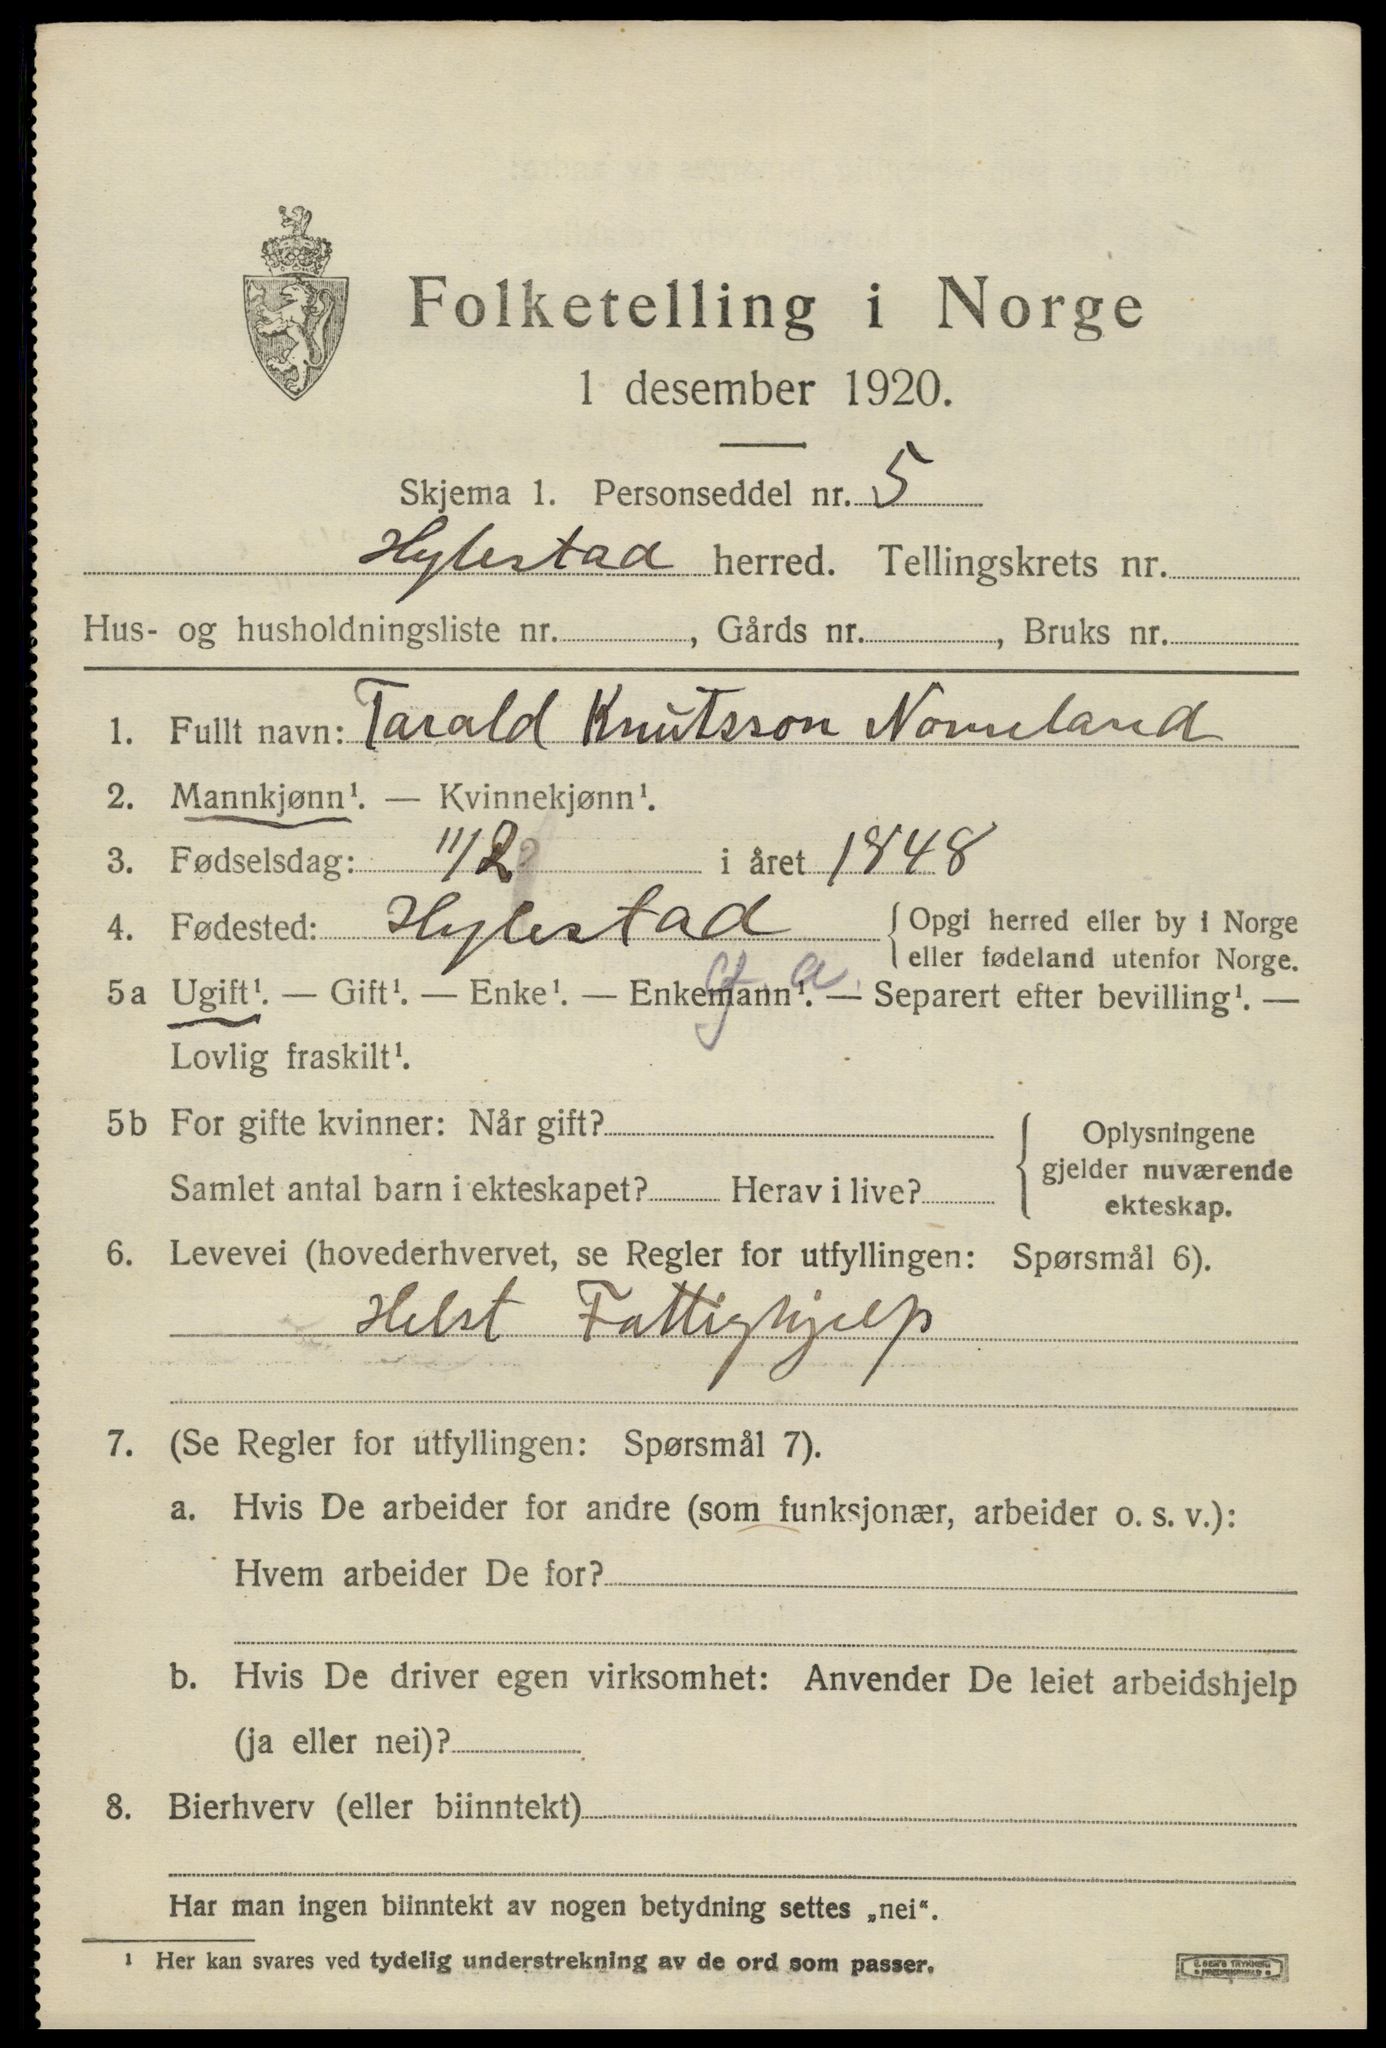 Folketelling i Norge
1 desember 1920.
Skjema 1. Personseddel nr. 5
Hylestad herred. Tellingskrets nr.
Hus- og husholdningsliste nr. , Gårds nr. , Bruks nr.
1. Fullt navn: Tarald Knutsson Nomeland
2. Mannkjønn¹. — Kvinnekjønn¹.
3. Fødselsdag: 11/2 i året 1848
4. Fødested: Hylestad { Opgi herred eller by i Norge
eller fødeland utenfor Norge.
5a Ugift¹. — Gift¹. — Enke¹. — Enkemann¹. — Separert efter bevilling¹. —
Lovlig fraskilt¹.
5b For gifte kvinner: Når gift?
Samlet antal barn i ekteskapet? Herav i live?
Oplysningene
gjelder nuværende
ekteskap.
6. Levevei (hovederhvervet, se Regler for utfyllingen: Spørsmål 6).
Helst Fattighjelp
7. (Se Regler for utfyllingen: Spørsmål 7).
a. Hvis De arbeider for andre (som funksjonær, arbeider o. s. v.):
Hvem arbeider De for?
b. Hvis De driver egen virksomhet: Anvender De leiet arbeidshjelp
(ja eller nei)?
8. Bierhverv (eller biinntekt)
Har man ingen biinntekt av nogen betydning settes „nei“.
¹ Her kan svares ved tydelig understrekning av de ord som passer.